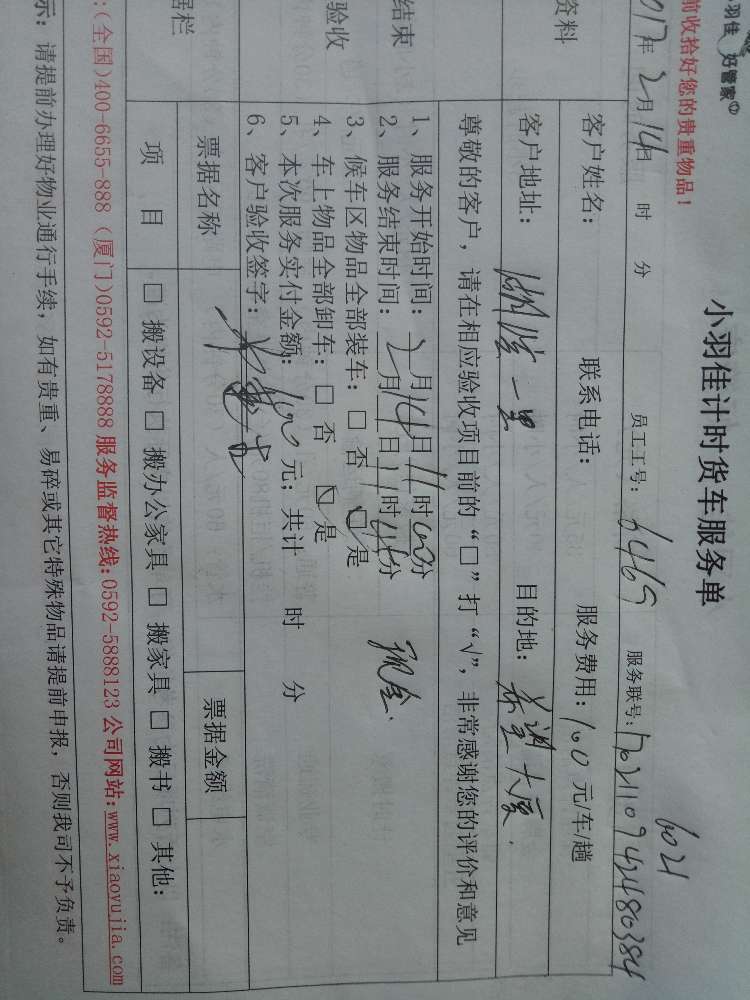 小羽佳 好管家
小羽佳计时货车服务单
前收拾好您的贵重物品！
6021
017年2月14日 时 分 员工工号：6469 服务联号：
资料
客户姓名： 联系电话： 服务费用：100元/车/趟
客户地址： 一里 目的地： 大厦
尊敬的客户，请在相应验收项目前的“□”打“√”，非常感谢您的评价和意见
结束
验收
1、服务开始时间：2月14日11时00分
2、服务结束时间：2月14日11时44分
现金.
3、候车区物品全部装车：□ 否 □ 是
4、车上物品全部卸车：□ 否 □ 是
5、本次服务实付金额：100元；共计 时 分
6、客户验收签字：
据栏
票据名称 票据金额
项 目 □ 搬设备 □ 搬办公家具 □ 搬家具 □ 搬书 □ 其他：
：(全国)400-6655-888 (厦门)0592-5178888 服务监督热线：0592-5888123 公司网站：www.xiaoyujia.com
示：请提前办理好物业通行手续，如有贵重、易碎或其它特殊物品请提前申报，否则我司不予负责。